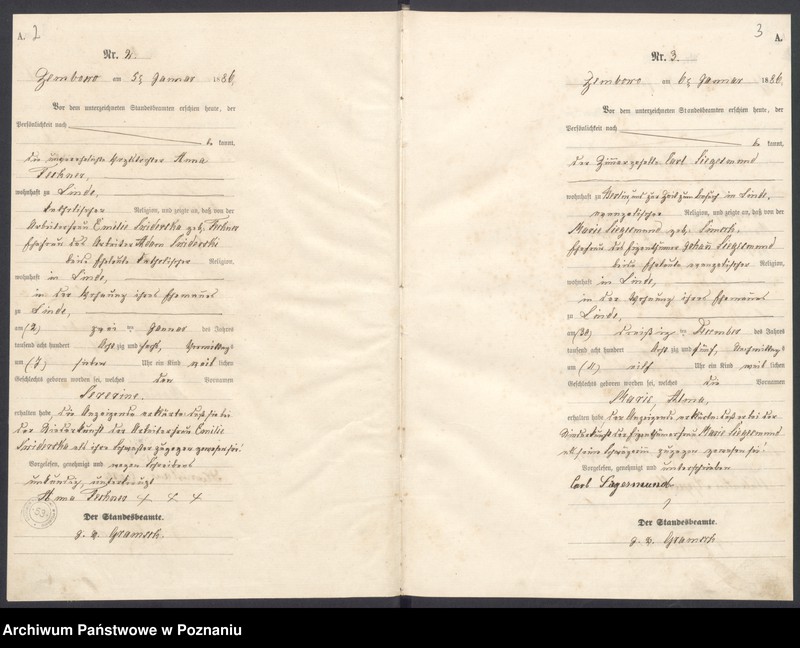 A. 2
Nr. 2.
Zemborowo am 5ten Januar 1886.
Vor dem unterzeichneten Standesbeamten erschien heute, der
Persönlichkeit nach
be kannt,
die unverehelichte Anna
wohnhaft zu Linde,
katholischer Religion, und zeigte an, daß von der
Arbeiterfrau Emilie geb.
Ehefrau des Arbeiter Adam
beide Eheleute katholischer Religion,
wohnhaft in Linde,
in der Wohnung ihres Ehemannes
zu Linde,
am (2) zwei ten Januar des Jahres
tausend acht hundert Acht zig und sechs, Vormittags
um (7) sieben Uhr ein Kind weib lichen
Geschlechts geboren worden sei, welches den Vornamen
Severine.
erhalten habe, die Anzeigende erklärte daß sie bei
der Niederkunft der Arbeiterfrau Emilie
als ihre Schwester zugegen gewesen sei.
Vorgelesen, genehmigt und wegen Schreibens
unkundig, unterkreuzt
Anna + + +
Der Standesbeamte.
Gramsch.
3
A.
Nr. 3.
Zemborowo am 6ten Januar 1886.
Vor dem unterzeichneten Standesbeamten erschien heute, der
Persönlichkeit nach
be kannt,
der Zimmergeselle Carl Siegesmund
wohnhaft zu Berlin, zur Zeit zum Besuch in Linde,
evangelischer Religion, und zeigte an, daß von der
Marie Siegesmund geb.
Ehefrau des Eigenthümer Johann Siegesmund
beide Eheleute evangelischer Religion,
wohnhaft in Linde,
in der Wohnung ihres Ehemannes
zu Linde,
am (30) dreißig ten December des Jahres
tausend acht hundert Acht zig und fünf, Nachmittags
um (11) elf Uhr ein Kind weib lichen
Geschlechts geboren worden sei, welches die Vornamen
Marie Alma,
erhalten habe, der Anzeigende erklärte daß er bei der
Niederkunft der Eigenthümerfrau Marie Siegesmund
als seine Schwägerin zugegen gewesen sei.
Vorgelesen, genehmigt und unterschrieben
Carl Sigesmund
Der Standesbeamte.
Gramsch
Archiwum Państwowe w Poznaniu